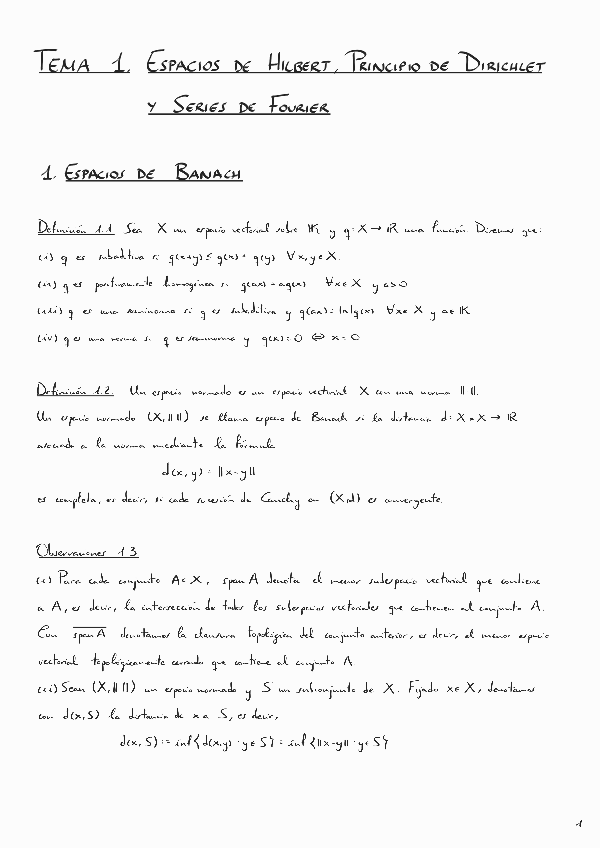 TEMA 1. ESPACIOS DE HILBERT, PRINCIPIO DE DIRICHLET
Y SERIES DE FOURIER
1. ESPACIOS DE BANACH
Definición 1.1 Sea X un espacio vectorial sobre IK y q: X → IR una función. Diremos que:
(i) q es subaditiva si q(x+y) ≤ q(x) + q(y) ∀x,y ∈ X.
(ii) q es positivamente homogénea si q(ax) = aq(x) ∀x ∈ X y a>0
(iii) q es una seminorma si q es subaditiva y q(ax) = |a|q(x) ∀x ∈ X y a ∈ IK
(iv) q es una norma si q es seminorma y q(x)=0 ⇔ x=0
Definición 1.2. Un espacio normado es un espacio vectorial X con una norma ‖·‖.
Un espacio normado (X,‖·‖) se llama espacio de Banach si la distancia d: X×X → IR
asociada a la norma mediante la fórmula
d(x,y) = ‖x-y‖
es completa, es decir, si cada sucesión de Cauchy en (X,d) es convergente.
Observaciones 1.3
(i) Para cada conjunto A⊂X, span A denota el menor subespacio vectorial que contiene
a A, es decir, la intersección de todos los subespacios vectoriales que contienen al conjunto A.
Con \overline{span A} denotamos la clausura topológica del conjunto anterior, es decir, el menor espacio
vectorial topológicamente cerrado que contiene al conjunto A
(ii) Sean (X,‖·‖) un espacio normado y S un subconjunto de X. Fijado x∈X, denotamos
con d(x,S) la distancia de x a S, es decir,
d(x,S) := inf{d(x,y) : y∈S} = inf{‖x-y‖ : y∈S}
1